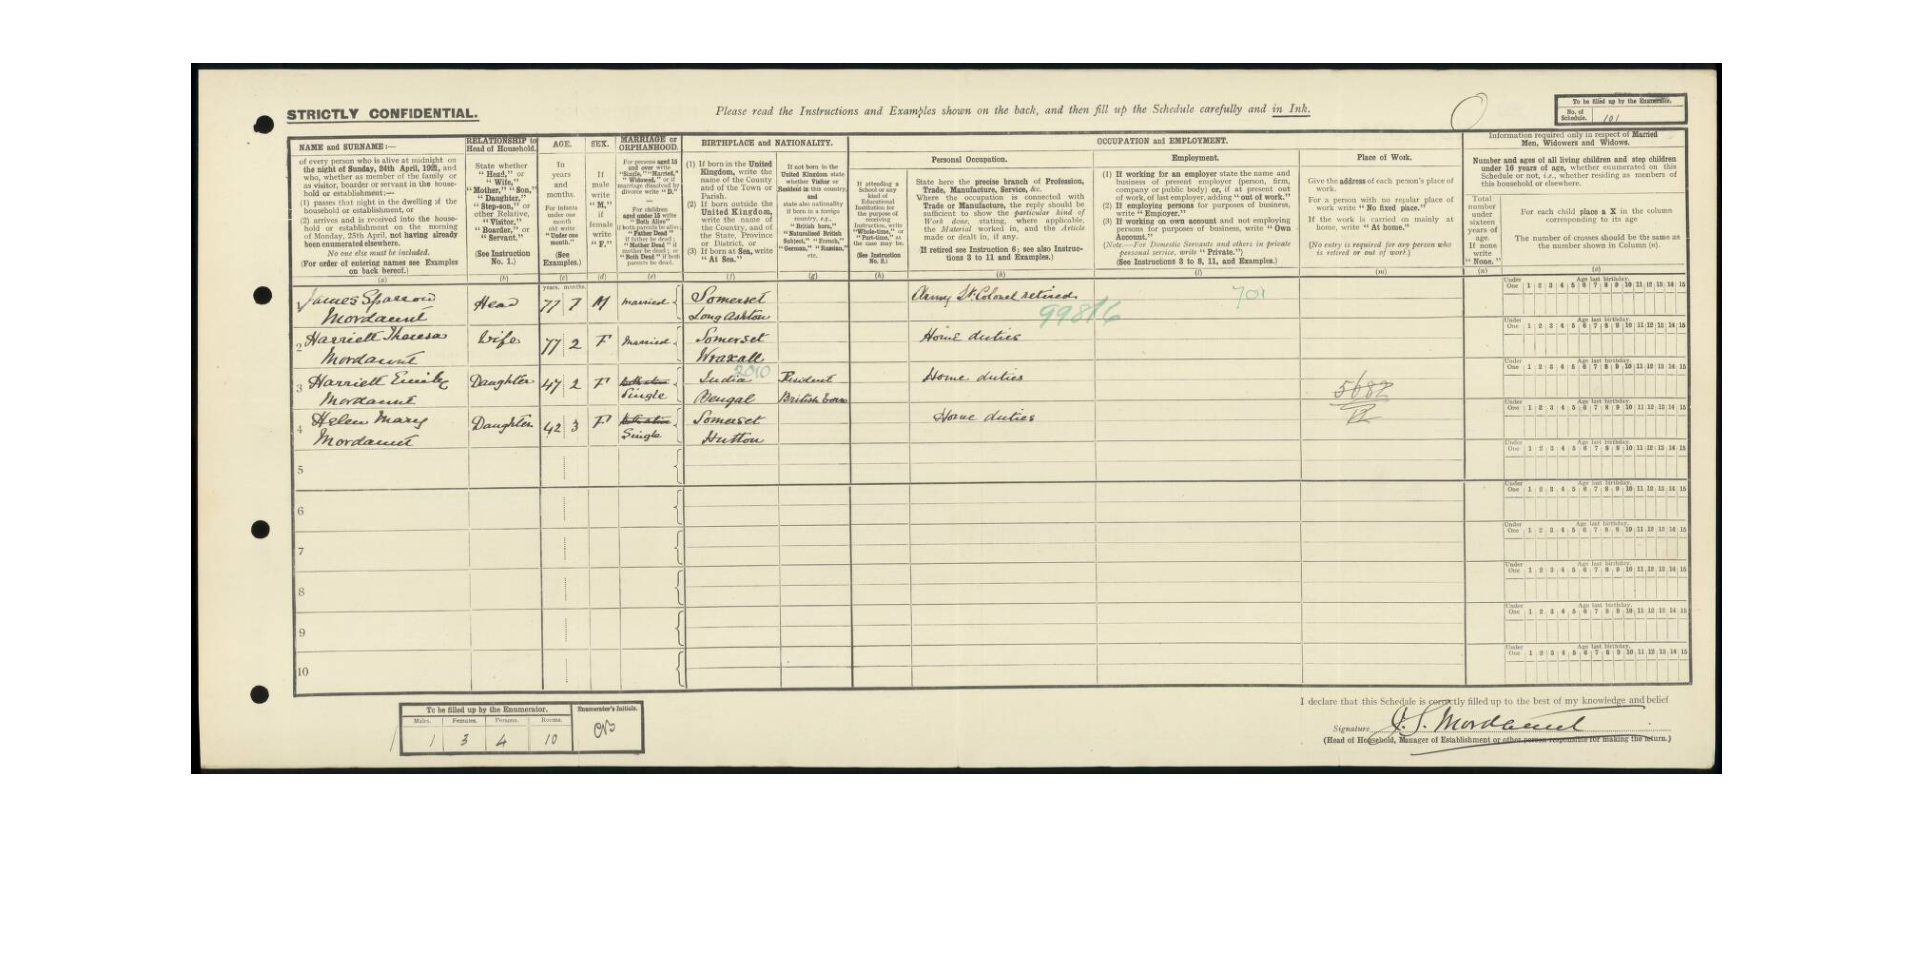 STRICTLY CONFIDENTIAL.
Please read the Instructions and Examples shown on the back, and then fill up the Schedule carefully and in Ink.
To be filled up by the Enumerator.
No. of Schedule. 101
NAME and SURNAME:—
of every person who is alive at midnight on
the night of Sunday, 24th April, 1921, and
who, whether as member of the family or
as visitor, boarder or servant in the house-
hold or establishment:—
(1) passes that night in the dwelling of the
household or establishment, or
(2) arrives and is received into the house-
hold or establishment on the morning
of Monday, 25th April, not having already
been enumerated elsewhere.
No one else must be included.
(For order of entering names see Examples
on back hereof.)
(a)
RELATIONSHIP to
Head of Household.
State whether
"Head," or
"Wife,"
"Mother," "Son,"
"Daughter,"
"Step-son," or
other Relative,
"Visitor,"
"Boarder," or
"Servant."
(See Instruction
No. 1.)
(b)
AGE.
In
years
and
months.
For infants
under one
month
old write
"Under one
month."
(See
Examples.)
(c)
SEX.
If
male
write
"M,"
if
female
write
"F."
(d)
MARRIAGE or
ORPHANHOOD.
For persons aged 15
and over write
"Single," "Married,"
"Widowed," or if
marriage dissolved by
divorce write "D."
For children
aged under 15 write
"Both Alive"
"Father Dead"
"Mother Dead"
"Both Dead" if both
parents be dead.
(e)
BIRTHPLACE and NATIONALITY.
(1) If born in the United
Kingdom, write the
name of the County
and of the Town or
Parish.
(2) If born outside the
United Kingdom,
write the name of
the Country, and of
the State, Province
or District, or
(3) If born at Sea, write
"At Sea."
(f)
If not born in the
United Kingdom state
whether Visitor or
Resident in this country,
and
state also nationality
if born in a foreign
country, e.g.,
"British born,"
"Naturalised British
Subject," "French,"
"German," "Russian,"
etc.
(g)
OCCUPATION and EMPLOYMENT.
If attending a
School or any
kind of
Educational
Institution for
the purpose of
receiving
Instruction, write
"Whole-time," or
"Part-time," as
the case may be.
(See Instruction
No. 2.)
(h)
Personal Occupation.
State here the precise branch of Profession,
Trade, Manufacture, Service, &c.
Where the occupation is connected with
Trade or Manufacture, the reply should be
sufficient to show the particular kind of
Work done, stating, where applicable,
the Material worked in, and the Article
made or dealt in, if any.
If retired see Instruction 6; see also Instruc-
tions 3 to 11 and Examples.)
(k)
Employment.
(1) If working for an employer state the name and
business of present employer (person, firm,
company or public body) or, if at present out
of work, of last employer, adding "out of work."
(2) If employing persons for purposes of business,
write "Employer."
(3) If working on own account and not employing
persons for purposes of business, write "Own
Account."
(Note.—For Domestic Servants and others in private
personal service, write "Private.")
(See Instructions 3 to 8, 11, and Examples.)
(l)
Place of Work.
Give the address of each person's place of
work.
For a person with no regular place of
work write "No fixed place."
If the work is carried on mainly at
home, write "At home."
(No entry is required for any person who
is retired or out of work.)
(m)
Information required only in respect of Married
Men, Widowers and Widows.
Number and ages of all living children and step children
under 16 years of age, whether enumerated on this
Schedule or not, i.e., whether residing as members of
this household or elsewhere.
Total
number
under
sixteen
years of
age.
If none
write
"None."
(n)
For each child place a X in the column
corresponding to its age
The number of crosses should be the same as
the number shown in Column (n).
(o)
years. months.
Under One Age last birthday. 1 2 3 4 5 6 7 8 9 10 11 12 13 14 15
1 James Sparrow Mordaunt Head 77 7 M Married Somerset Long Ashton Army Lt. Colonel retired 99816 701
Under One Age last birthday. 1 2 3 4 5 6 7 8 9 10 11 12 13 14 15
2 Harriett Theresa Mordaunt Wife 77 2 F Married Somerset Wraxall Home duties
Under One Age last birthday. 1 2 3 4 5 6 7 8 9 10 11 12 13 14 15
3 Harriett Emily Mordaunt Daughter 47 2 F Single India Bengal Resident British born Home duties
Under One Age last birthday. 1 2 3 4 5 6 7 8 9 10 11 12 13 14 15
4 Helen Mary Mordaunt Daughter 42 3 F Single Somerset Hutton Home duties
5 Under One Age last birthday. 1 2 3 4 5 6 7 8 9 10 11 12 13 14 15
6 Under One Age last birthday. 1 2 3 4 5 6 7 8 9 10 11 12 13 14 15
7 Under One Age last birthday. 1 2 3 4 5 6 7 8 9 10 11 12 13 14 15
8 Under One Age last birthday. 1 2 3 4 5 6 7 8 9 10 11 12 13 14 15
9 Under One Age last birthday. 1 2 3 4 5 6 7 8 9 10 11 12 13 14 15
10 Under One Age last birthday. 1 2 3 4 5 6 7 8 9 10 11 12 13 14 15
To be filled up by the Enumerator.
Males. Females. Persons. Rooms.
1 3 4 10
Enumerator's Initials.
I declare that this Schedule is correctly filled up to the best of my knowledge and belief
Signature J. S. Mordaunt
(Head of Household, Manager of Establishment or other person responsible for making the return.)